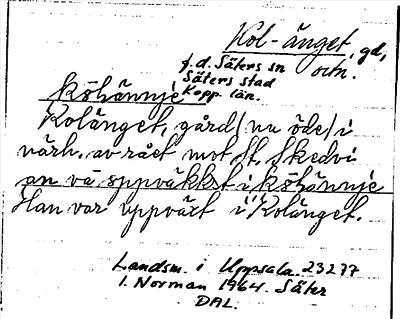 Kol-änget, gd,
f.d. Säters sn
ochn.
Säters stad
Kopp. län.
köhännje
Kolänget, gård (nu öde) i
närh. av rået mot St. Skedvi
an va sppväkkst i köhännje
Han var uppväxt i "Kolänget.
Landsm. i Uppsala 23277
I. Norman 1964. Säter
DAL.